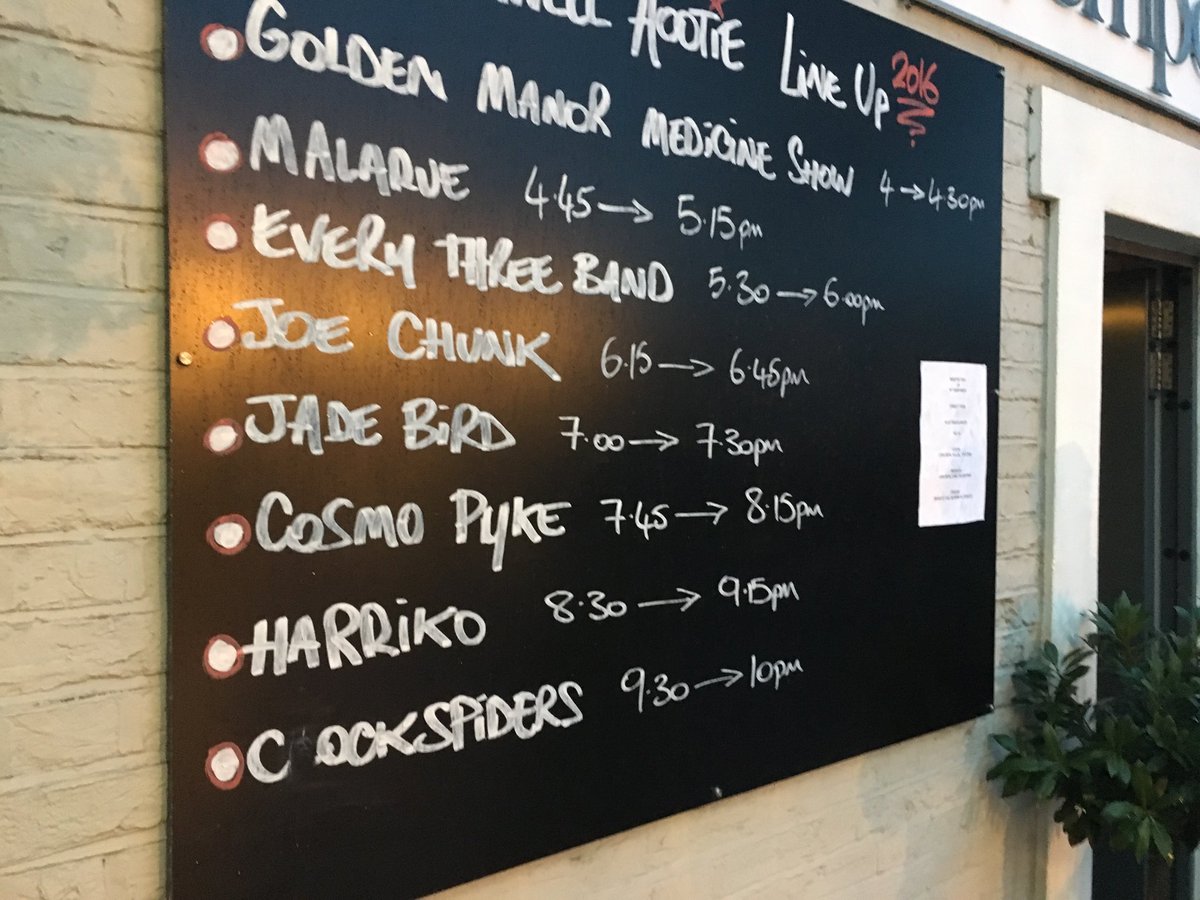 HOOTIE LINE UP 2016
GOLDEN MANOR MEDICINE SHOW 4→4.30pm
MALARUE 4.45→5.15pm
EVERY THREE BAND 5.30→6.00pm
JOE CHUNK 6.15→6.45pm
JADE BIRD 7.00→7.30pm
COSMO PYKE 7.45→8.15pm
HARRIKO 8.30→9.15pm
C OCKSPIDERS 9.30→10pm